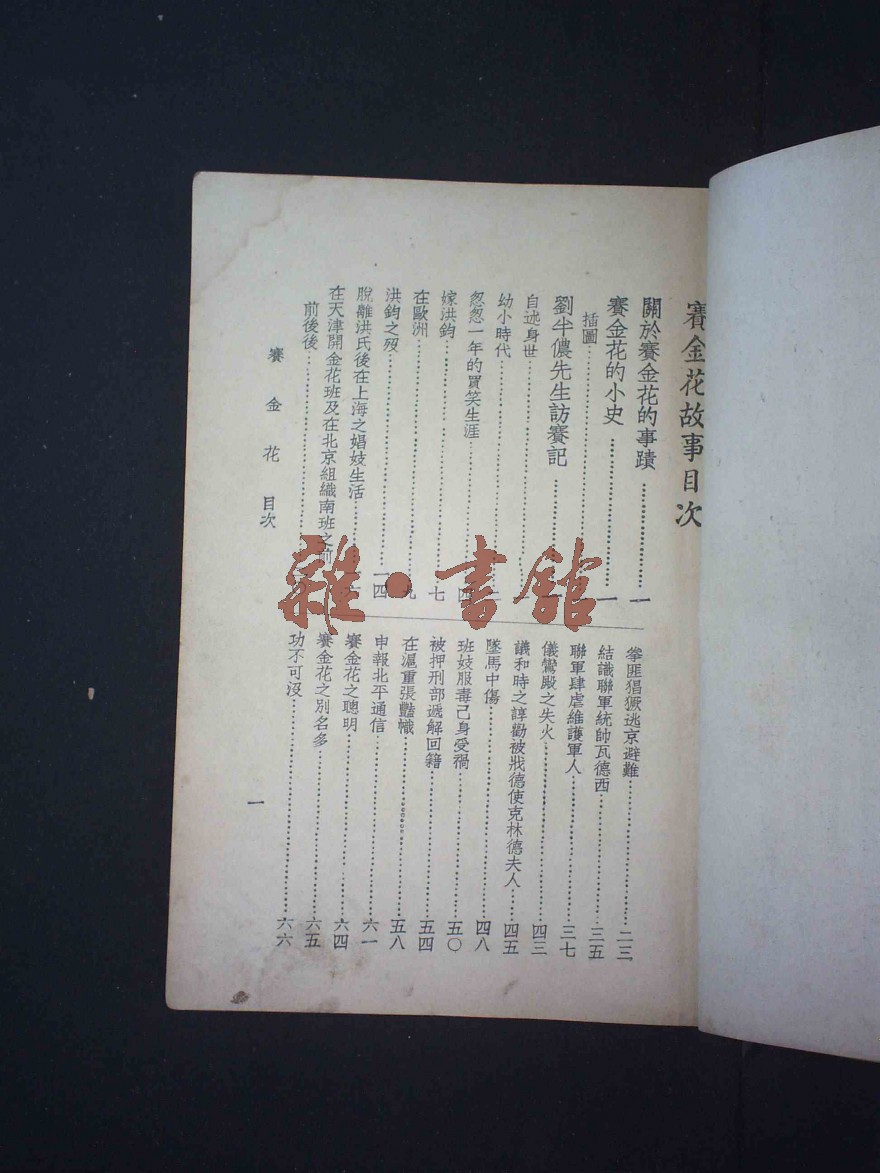 賽金花故事目次
關於賽金花的事蹟……一
賽金花的小史……一
插圖
劉半儂先生訪賽記
自述身世
幼小時代……二
怱怱一年的買笑生涯……四
嫁洪鈞……七
在歐洲……九
洪鈞之歿……一四
脫離洪氏後在上海之娼妓生活
在天津開金花班及在北京組織南班之前
前後後
拳匪猖獗逃京避難……二三
結識聯軍統帥瓦德西……三五
聯軍肆虐維護軍人……三七
儀鸞殿之失火……四三
議和時之諄勸被戕德使克林德夫人……四五
墜馬中傷……四八
班妓服毒己身受禍……五〇
被押刑部遞解回籍……五四
在滬重張豔幟……五八
申報北平通信……六一
賽金花之聰明……六四
賽金花之別名多……六五
功不可沒……六六
賽金花 目次
一
雜·書館